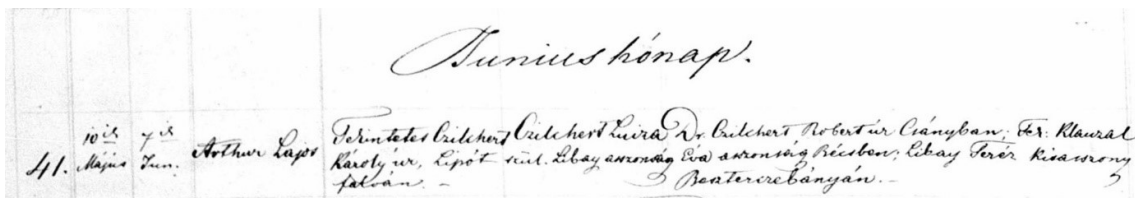 Junius hónap.
41. 10ik Május 7ik Jun. Arthur Lajos Tekintetes Czilchert Károly úr, Lipót falván. – Czilchert Luiza szül. Libay asszonyság Dr. Czilchert Robert úr Csányban; Ter: Klauzal Éva asszonyság Bécsben; Libay Teréz kisasszony Beszterczebányán. –